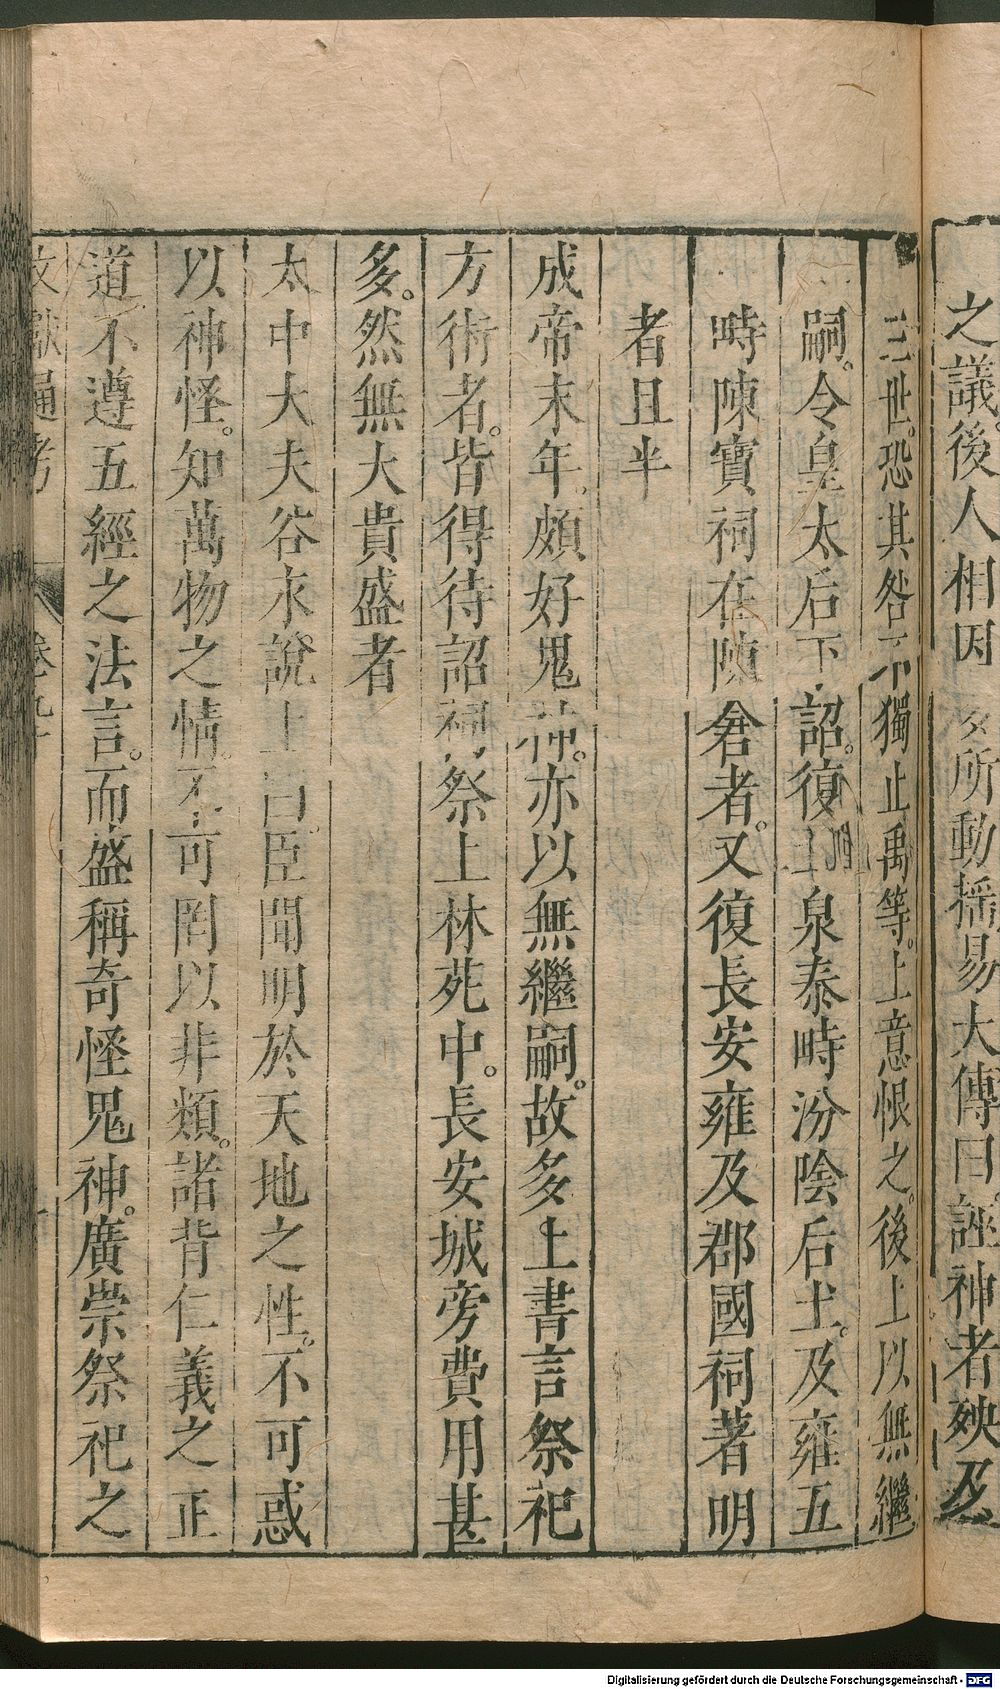 之議。後人相因 多所動搖。易大傳曰。誣神者殃及
三世。恐其咎不獨止禹等。上意恨之。後上以無繼
嗣。令皇太后下詔。復甘泉泰畤汾陰后土。及雍五
畤陳寶祠在陳倉者。又復長安雍及郡國祠著明
者且半
成帝末年。頗好鬼神。亦以無繼嗣。故多上書言祭祀
方術者。皆得待詔祠祭上林苑中。長安城旁費用甚
多。然無大貴盛者
太中大夫谷永說上曰。臣聞明於天地之性。不可惑
以神怪。知萬物之情。不可罔以非類。諸背仁義之正
道。不遵五經之法言。而盛稱奇怪鬼神。廣崇祭祀之
文獻通考 卷九十
Digitalisierung gefördert durch die Deutsche Forschungsgemeinschaft - DFG